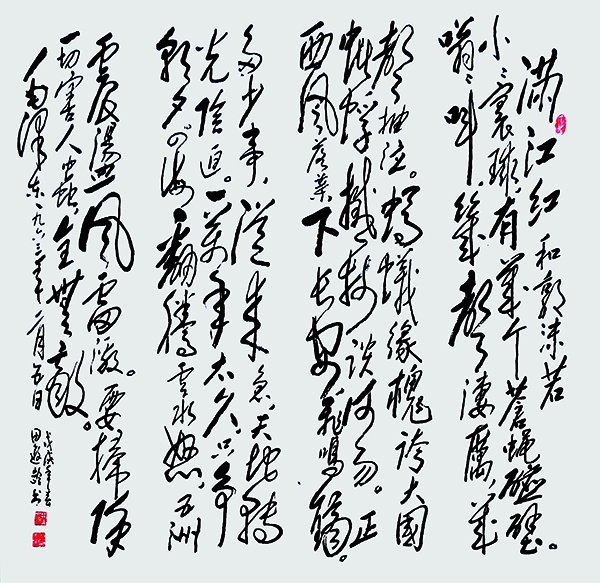 满江红 和郭沫若
小〻寰球,有几个苍蝇碰壁。
嗡〻叫,几声凄厉,几
声抽泣。蚂蚁缘槐誇大国
蚍蜉撼树谈何易。正
西风落葉下长安,飛鸣镝。
多少事,從来急,天地转
光阴迫。一万年太久,只争
朝夕。四海翻腾云水怒,五洲
震荡风雷激。要掃除
一切害人虫,全無敵。
毛泽东一九六三年二月五日